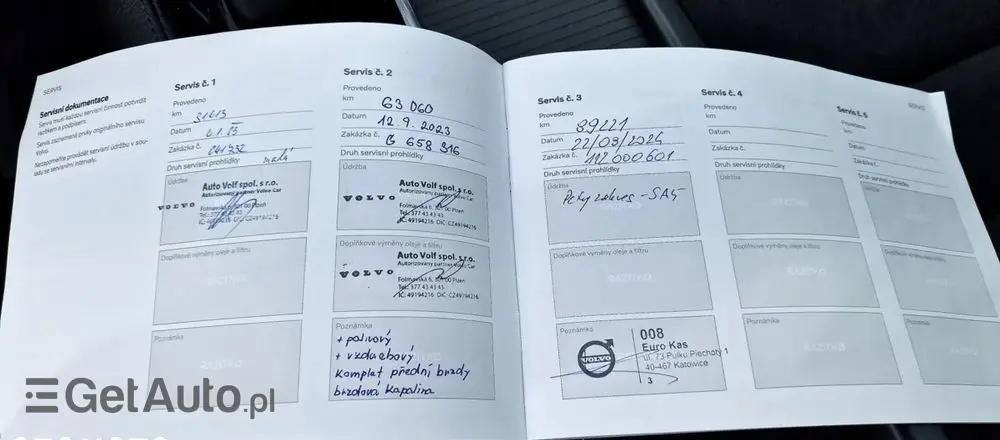 SERVIS
Servisní dokumentace
Servis musí každou servisní činnost potvrdit
razítkem a podpisem.
Servis zaznamená prvky originálního servisu
Volvo.
Nezapomeňte provádět servisní údržbu v sou-
ladu se servisními intervaly.
Servis č. 1
Provedeno
km
Datum
Zakázka č.
Druh servisní prohlídky malá
Údržba
VOLVO
Auto Volf spol. s r.o.
Autorizovaný partner Volvo Car
Folmavská 6, 301 00 Plzeň
Tel.: 377 43 43 43
IČ: 49194216 DIČ: CZ49194216
Doplňkové výměny oleje a filtru
RAZÍTKO
Poznámka
RAZÍTKO
Servis č. 2
Provedeno
km 63 060
Datum 12.9.2023
Zakázka č. B 658 316
Druh servisní prohlídky
Údržba
VOLVO
Auto Volf spol. s r.o.
Autorizovaný partner Volvo Car
Folmavská 6, 301 00 Plzeň
Tel.: 377 43 43 43
IČ: 49194216 DIČ: CZ49194216
Doplňkové výměny oleje a filtru
VOLVO
Auto Volf spol. s r.o.
Autorizovaný partner Volvo Car
Folmavská 6, 301 00 Plzeň
Tel.: 377 43 43 43
IČ: 49194216 DIČ: CZ49194216
Poznámka
+ palivový
+ vzduchový
komplet přední brzdy
brzdová kapalina
Servis č. 3
Provedeno
km 89221
Datum 22/08/2024
Zakázka č. 112 000 601
Druh servisní prohlídky
Údržba
Pełny zakres - SA5
Doplňkové výměny oleje a filtru
Poznámka
VOLVO
008
Euro Kas
ul. 73 Pułku Piechoty 1
40-467 Katowice
3
Servis č. 4
Provedeno
km
Datum
Zakázka č.
Druh servisní prohlídky
Údržba
RAZÍTKO
Doplňkové výměny oleje a filtru
RAZÍTKO
Poznámka
RAZÍTKO
Servis č. 5
Provedeno
km
Datum
Zakázka č.
Druh servisní prohlídky
Údržba
Poznámka
SERVIS
GetAuto.pl